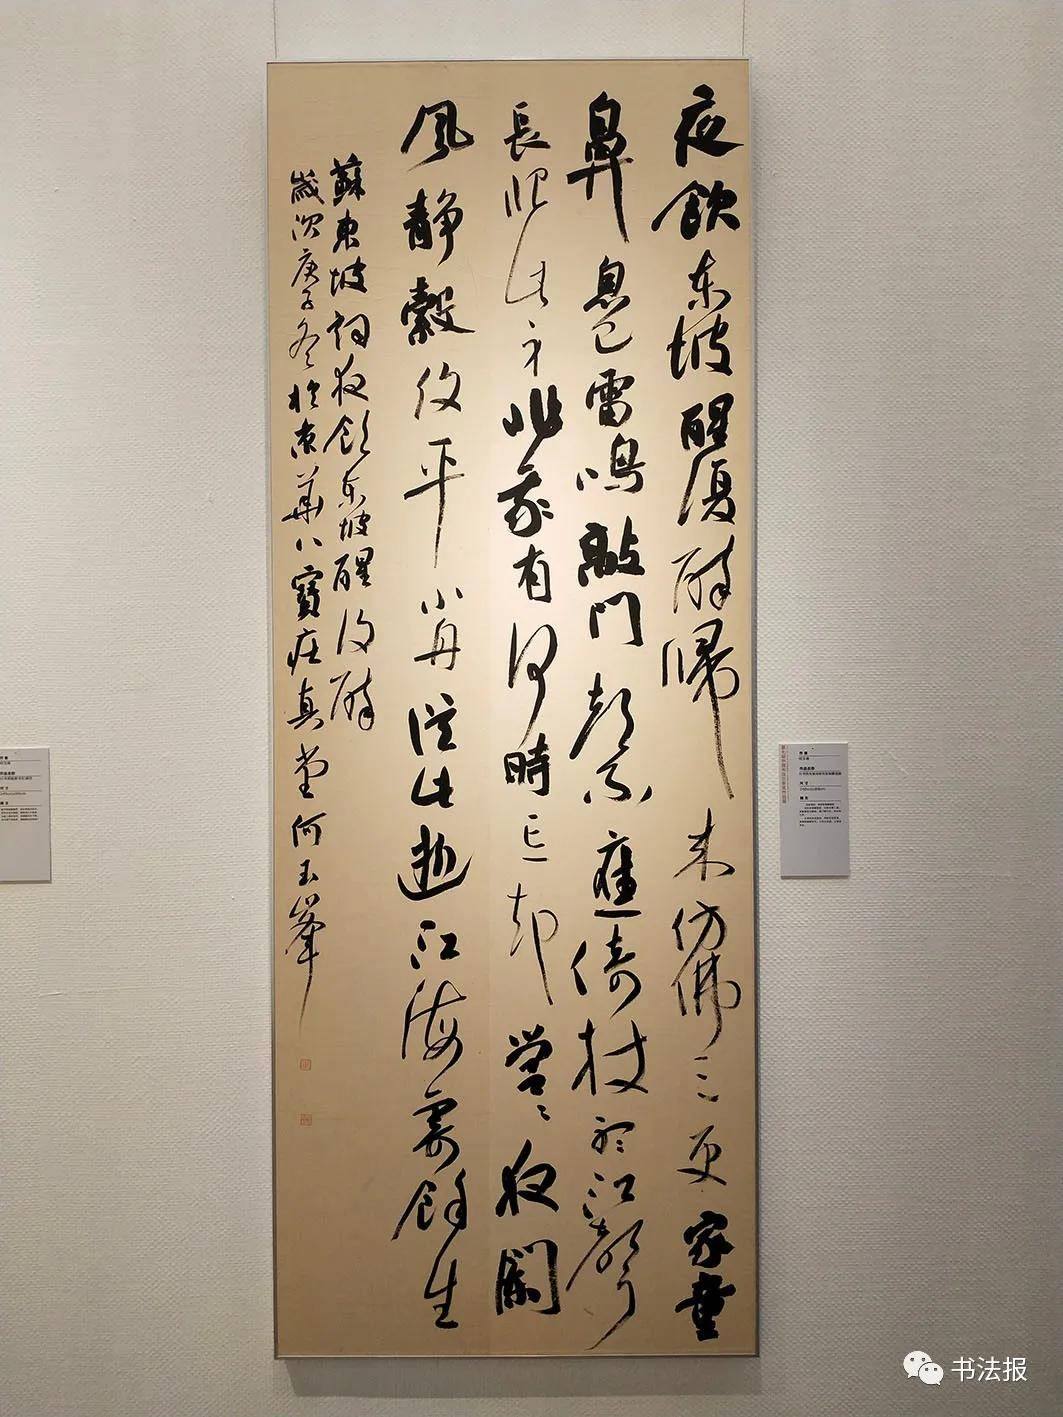 夜飲东坡醒復醉歸来仿佛三更家童
鼻息已雷鳴敲門都不應倚杖聽江聲
長恨此身非我有何時忘却營〻夜闌
風静縠紋平小舟從此逝江海寄餘生
蘇東坡詞夜飲东坡醒復醉
歲次庚子冬於京華八寶莊真堂何玉峯
书法报